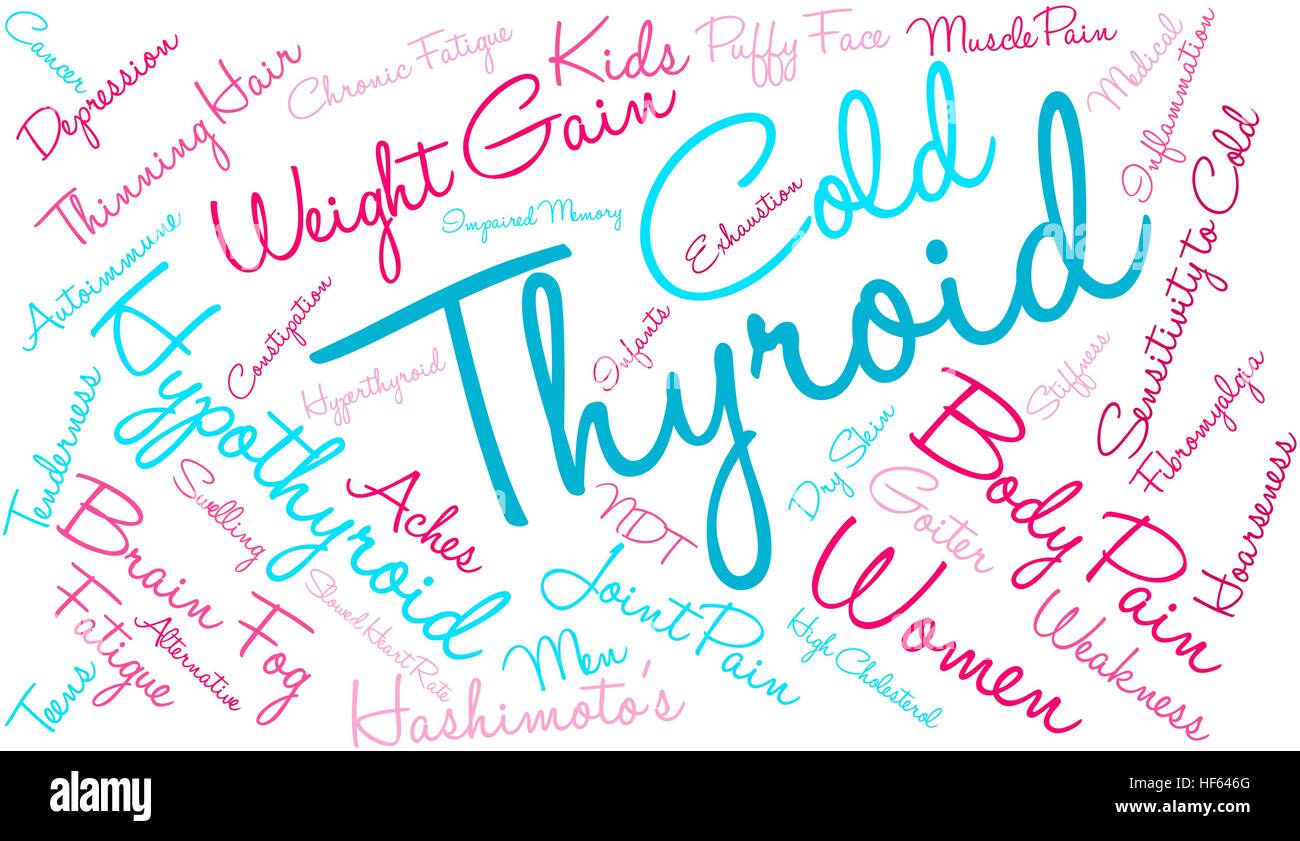 Cancer
Depression
Thinning Hair
Chronic Fatigue
Kids
Puffy Face
Muscle Pain
Medical
Inflammation
Weight Gain
Cold
Impaired Memory
Exhaustion
Sensitivity to Cold
Autoimmune
Constipation
Thyroid
Infants
Hyperthyroid
Hypothyroid
Stiffness
Fibromyalgia
Tenderness
Swelling
Aches
NDT
Dry Skin
Goiter
Body Pain
Hoarseness
Brain Fog
Fatigue
Alternative
Slowed Heart Rate
Joint Pain
Women
Weakness
High Cholesterol
Teens
Men
Hashimoto's
a
alamy
a
a
alamy
Image ID: HF646G
www.alamy.com